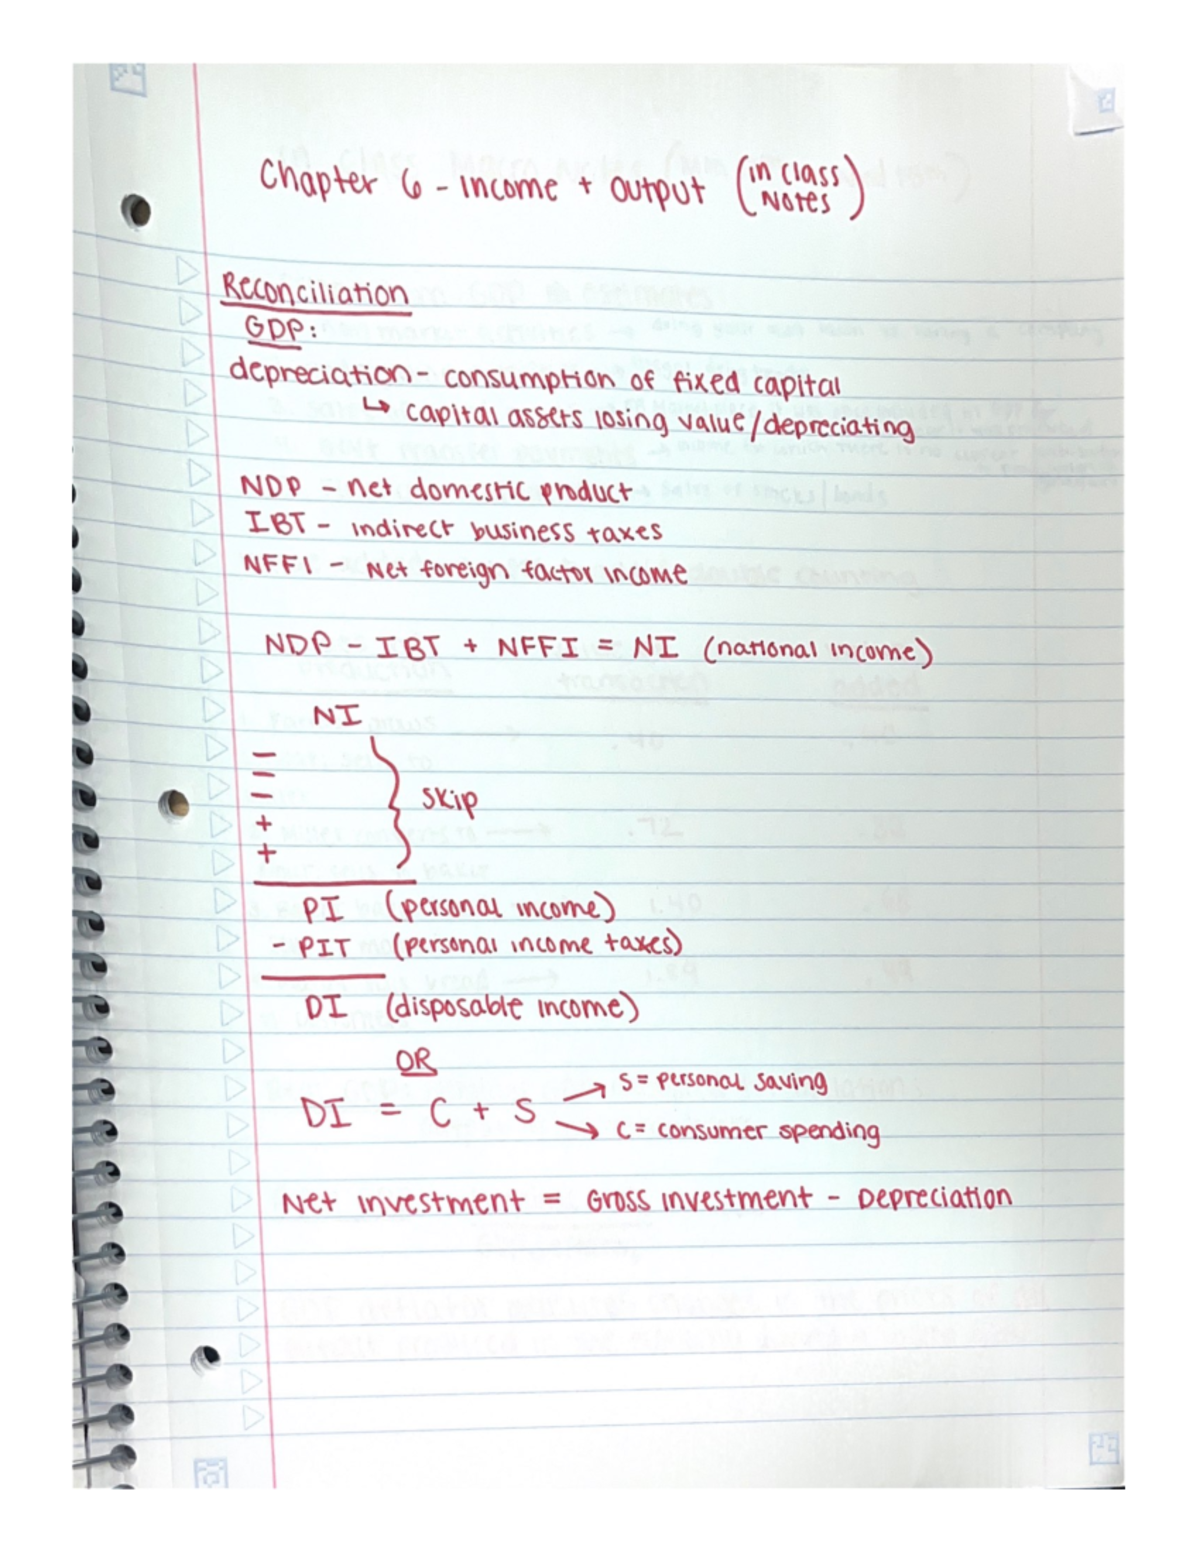 Chapter 6 - Income + Output (in class Notes)
Reconciliation
GDP:
depreciation - consumption of fixed capital
↳ capital assets losing value/depreciating
NDP - net domestic product
IBT - indirect business taxes
NFFI - Net foreign factor income
NDP - IBT + NFFI = NI (national income)
NI
-
-
- } skip
+
+
PI (personal income)
- PIT (personal income taxes)
DI (disposable income)
OR
DI = C + S
→ S = personal saving
→ C = consumer spending
Net investment = Gross investment - Depreciation